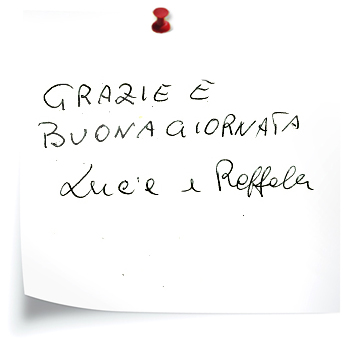 GRAZIE E
BUONA GIORNATA
Lucie e Raffaele